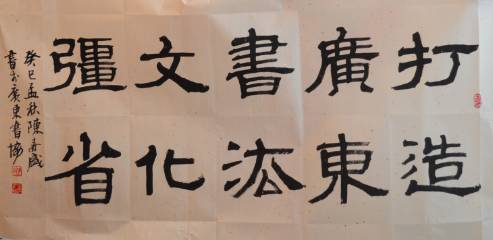 打造
廣東
書法
文化
彊省
癸巳孟秋陳
書於廣東書協